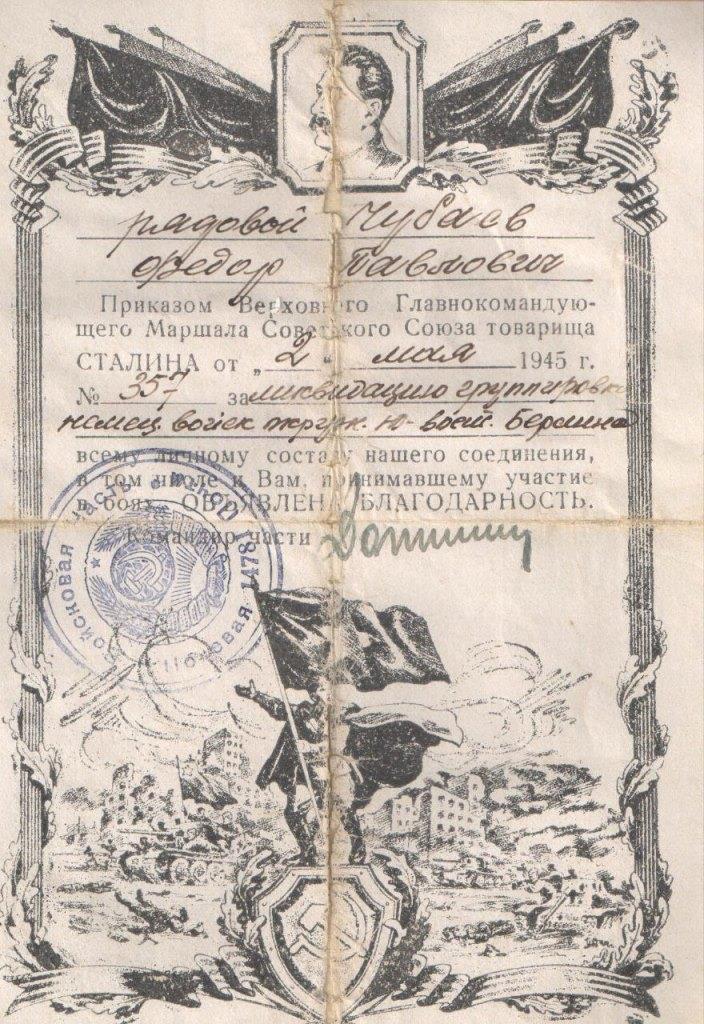 рядовой Чубаев
Федор Павлович
Приказом Верховного Главнокомандую-
щего Маршала Советского Союза товарища
СТАЛИНА от „ 2 " мая 1945 г.
№ 357 за ликвидацию группировки
немец войск окруж. ю-вост. Берлина
всему личному составу нашего соединения,
в том числе и Вам, принимавшему участие
в боях, ОБЪЯВЛЕНА БЛАГОДАРНОСТЬ.
Командир части
Войсковая часть Полевая 1478